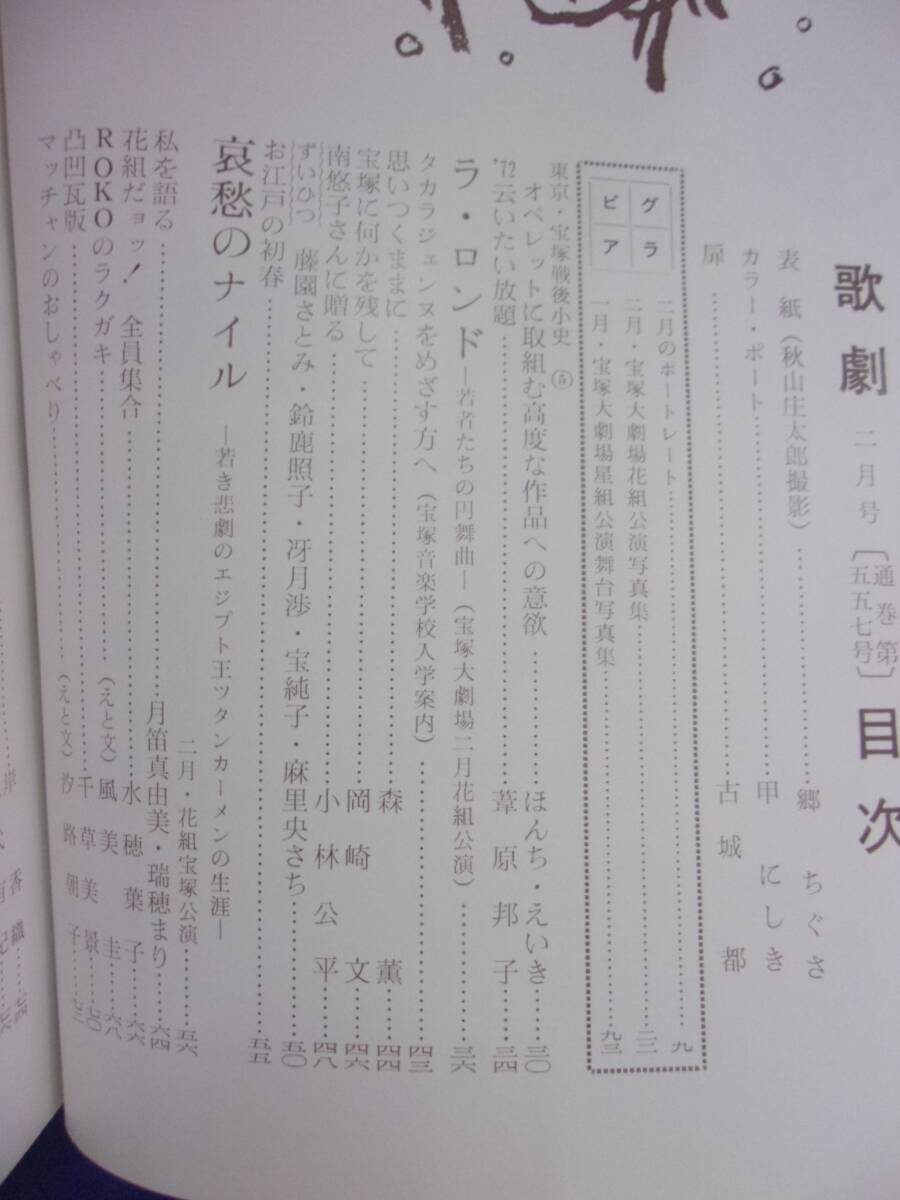 歌劇 二月号〔通巻第五五七号〕目次
表紙(秋山庄太郎撮影)……郷ちぐさ
カラー・ポート……甲にしき
扉……古城都
グラビア
二月のポートレート……九
二月・宝塚大劇場花組公演写真集……二二
一月・宝塚大劇場星組公演舞台写真集……九三
東京・宝塚戦後小史⑤
オペレットに取組む高度な作品への意欲……ほんち・えいき……三〇
'72云いたい放題……葦原邦子……三四
ラ・ロンド―若者たちの円舞曲―(宝塚大劇場二月花組公演)……三六
タカラジェンヌをめざす方へ(宝塚音楽学校入学案内)……四三
思いつくままに……森薫……四四
宝塚に何かを残して……岡崎文……四六
南悠子さんに贈る……小林公平……四八
ずいひつ 藤園さとみ・鈴鹿照子・冴月渉・宝純子・麻里央さち……五〇
お江戸の初春……五五
哀愁のナイル―若き悲劇のエジプト王ツタンカーメンの生涯―
二月・花組宝塚公演……五六
私を語る……月笛真由美・瑞穂まり……六四
花組だョッ!全員集合……水穂葉子……六六
ROKOのラクガキ……(えと文)風美圭……六八
凸凹瓦版……千草美景……七〇
マッチャンのおしゃべり……(えと文)汐路朝子……七二
香織……七四